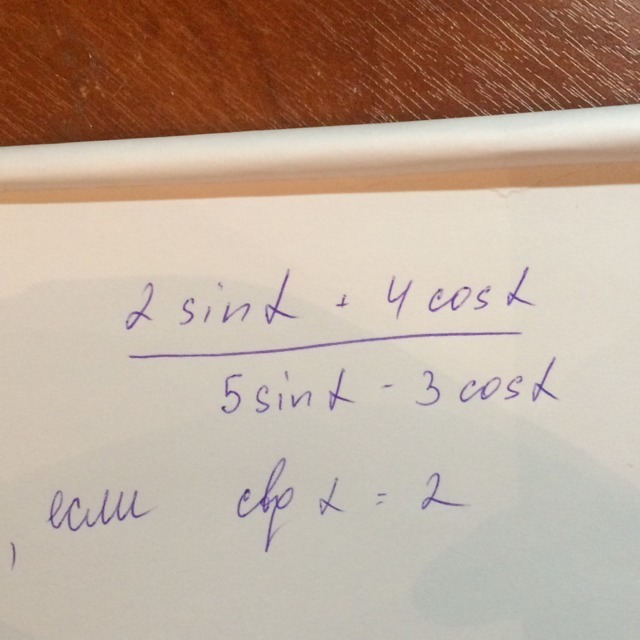 2 sin α + 4 cos α
5 sin α - 3 cos α
, если ctg α = 2